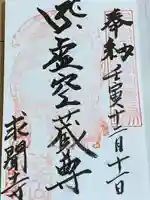 奉納 壬寅 十二月十一日
虚空蔵尊
求聞寺